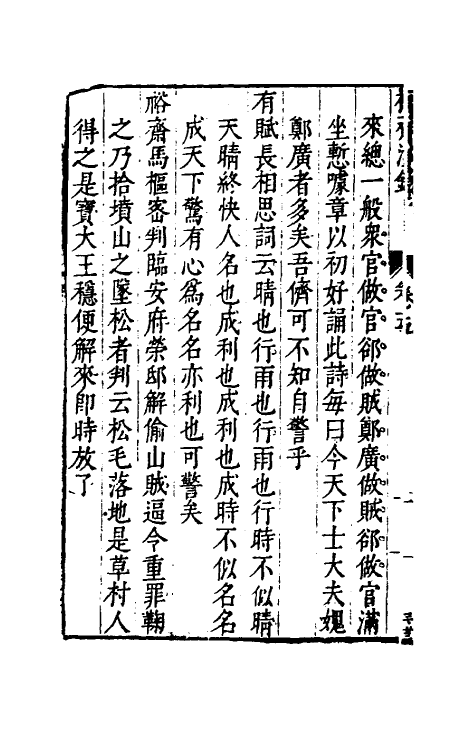 來總一般衆官做官郤做賊鄭廣做賊郤做官滿
坐慙噱章以初好誦此詩每曰今天下士大夫媿
鄭廣者多矣吾儕可不知自警乎
有賦長相思詞云晴也行雨也行雨也行時不似晴
天晴終快人名也成利也成利也成時不似名名
成天下驚有心爲名名亦利也可警矣
裕齋馬樞宻判臨安府榮邸解偷山賊逼令重罪鞠
之乃拾墳山之墜松者判云松毛落地是草村人
得之是寶大王穩便解來即時放了